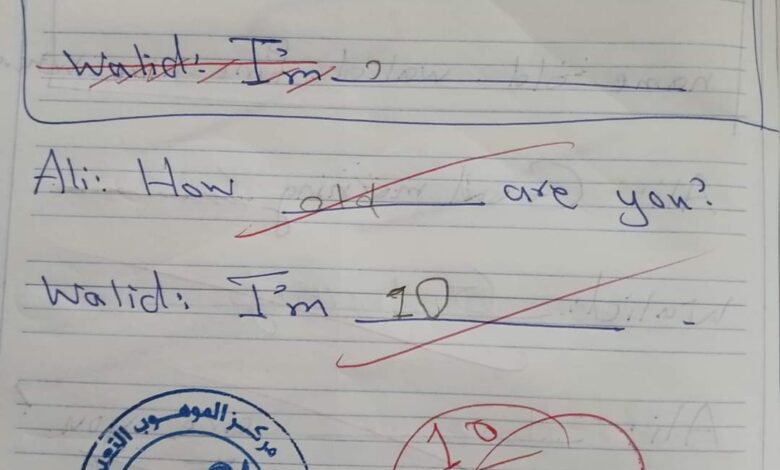 Walid: I'm
Ali: How old are you?
Walid: I'm 10 .
مركز الموهوب
10